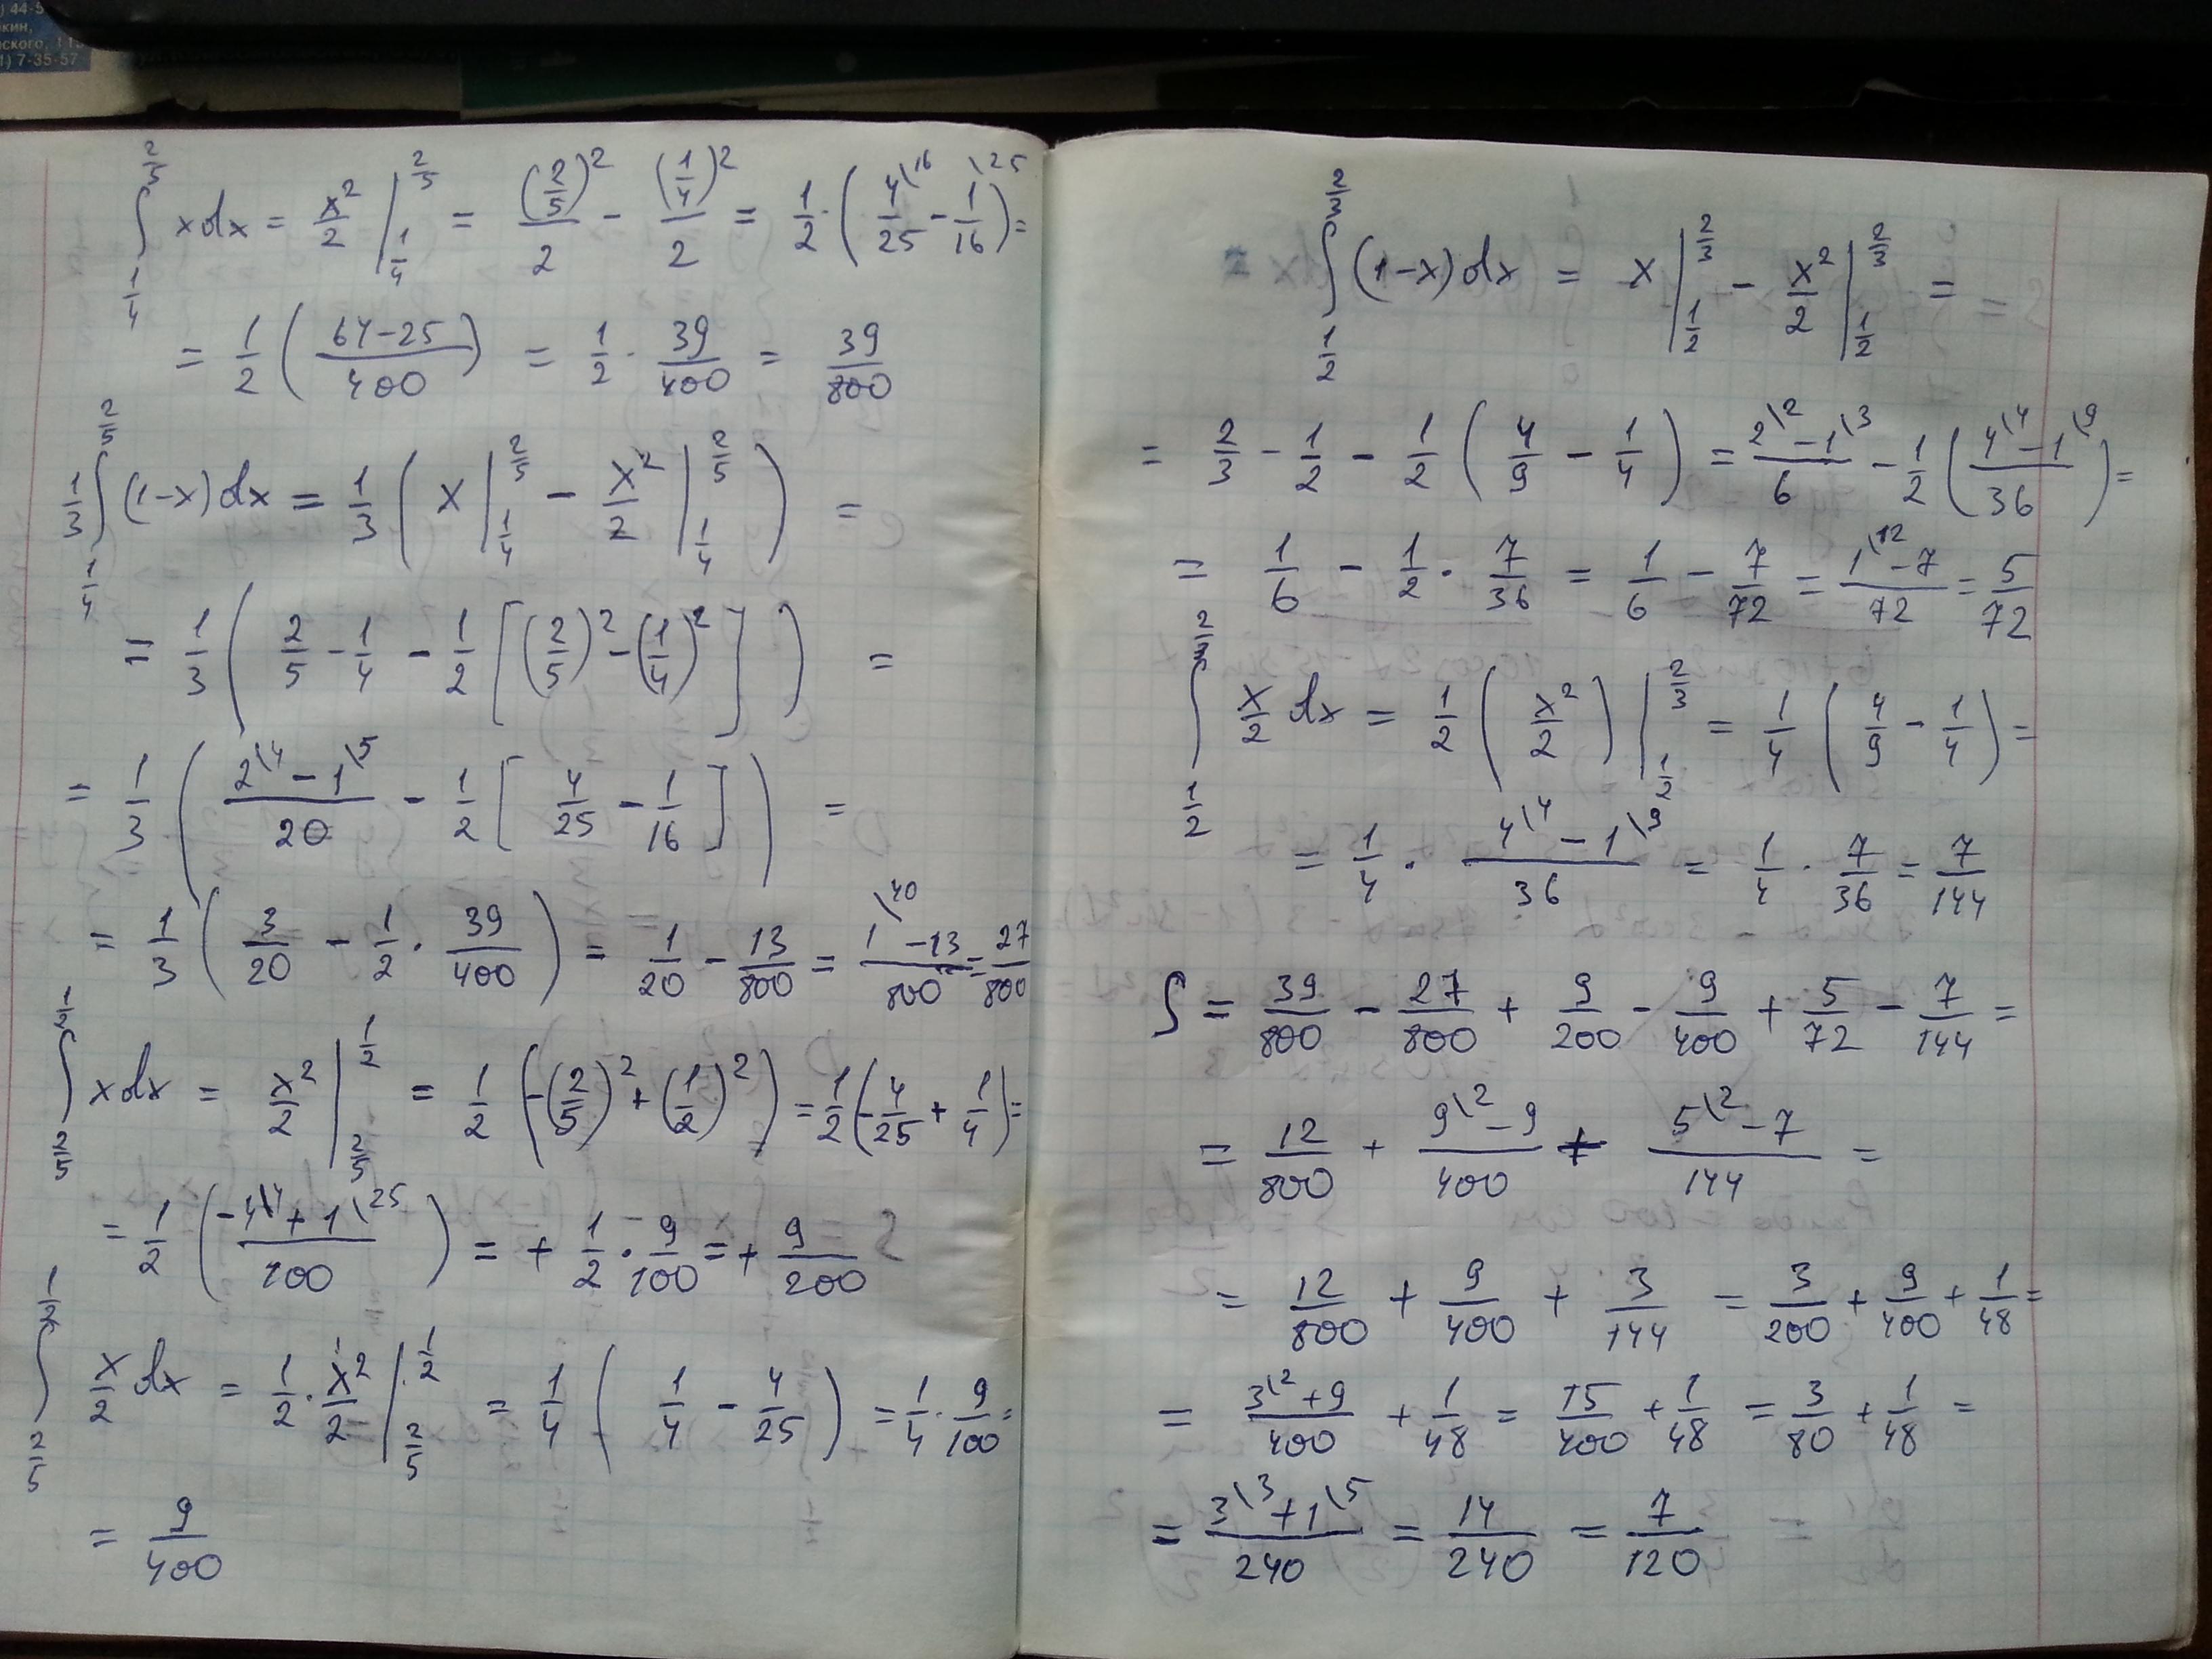 ) 44-5
кин,
ского, 113
1) 7-35-57
∫_{1/4}^{2/5} x dx = x²/2 |_{1/4}^{2/5} = (2/5)²/2 - (1/4)²/2 = 1/2 · (4\16/25 - 1\25/16) =
= 1/2 ((64-25)/400) = 1/2 · 39/400 = 39/800
1/3 ∫_{1/4}^{2/5} (1-x) dx = 1/3 (x |_{1/4}^{2/5} - x²/2 |_{1/4}^{2/5}) =
= 1/3 (2/5 - 1/4 - 1/2 [(2/5)² - (1/4)²]) =
= 1/3 ((2\4 - 1\5)/20 - 1/2 [4/25 - 1/16]) =
= 1/3 (3/20 - 1/2 · 39/400) = 1/20 - 13/800 = (1\40 - 13)/800 = 27/800
∫_{2/5}^{1/2} x dx = x²/2 |_{2/5}^{1/2} = 1/2 (-(2/5)² + (1/2)²) = 1/2 (-4/25 + 1/4) =
= 1/2 ((-4\4 + 1\25)/100) = + 1/2 · 9/100 = + 9/200
∫_{2/5}^{1/2} x/2 dx = 1/2 · x²/2 |_{2/5}^{1/2} = 1/4 (1/4 - 4/25) = 1/4 · 9/100 =
= 9/400
∫_{1/2}^{2/3} (1-x) dx = x |_{1/2}^{2/3} - x²/2 |_{1/2}^{2/3} =
= 2/3 - 1/2 - 1/2 (4/9 - 1/4) = (2\2 - 1\3)/6 - 1/2 ((4\4 - 1\9)/36) =
= 1/6 - 1/2 · 7/36 = 1/6 - 7/72 = (1\12 - 7)/72 = 5/72
∫_{1/2}^{2/3} x/2 dx = 1/2 (x²/2) |_{1/2}^{2/3} = 1/4 (4/9 - 1/4) =
= 1/4 · (4\4 - 1\9)/36 = 1/4 · 7/36 = 7/144
S = 39/800 - 27/800 + 9/200 - 9/400 + 5/72 - 7/144 =
= 12/800 + (9\2 - 9)/400 + (5\2 - 7)/144 =
= 12/800 + 9/400 + 3/144 = 3/200 + 9/400 + 1/48 =
= (3\2 + 9)/400 + 1/48 = 15/400 + 1/48 = 3/80 + 1/48 =
= (3\3 + 1\5)/240 = 14/240 = 7/120